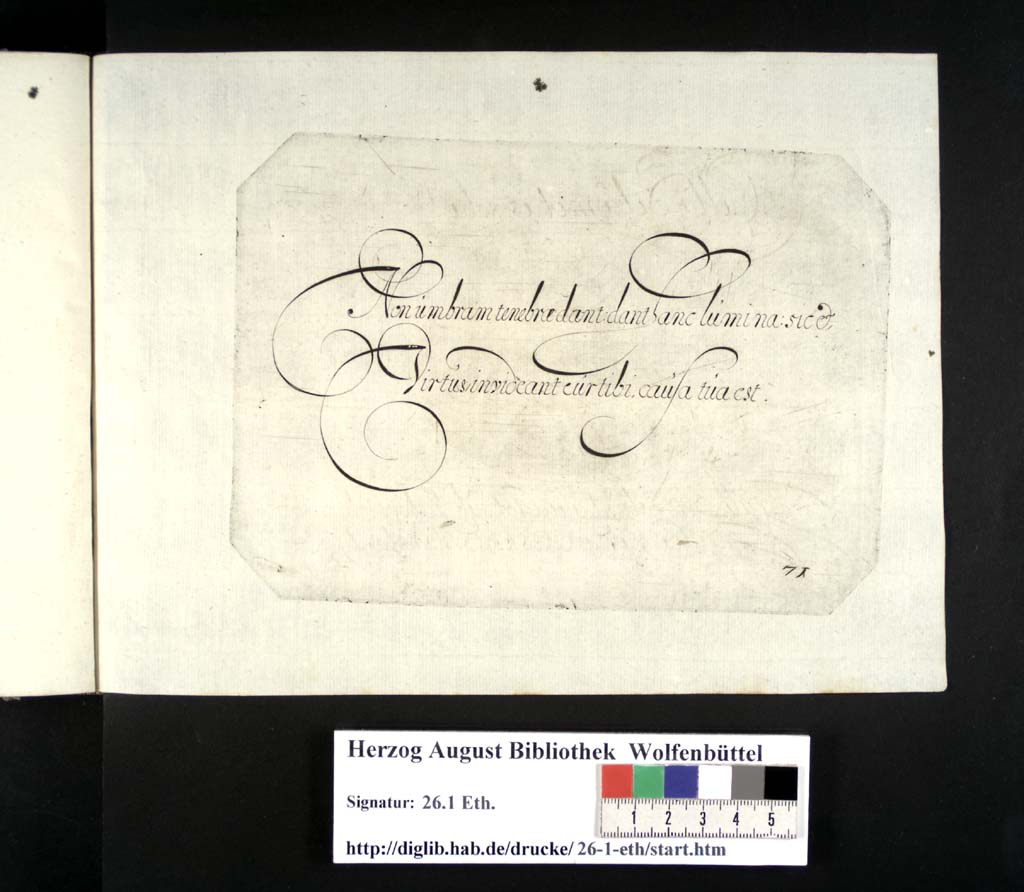 Non umbram tenebræ dant: dant hanc lumina: sic &,
Virtus, invideant cur tibi, causa tua est.
71
Herzog August Bibliothek Wolfenbüttel
Signatur: 26.1 Eth.
1 2 3 4 5
http://diglib.hab.de/drucke/ 26-1-eth/start.htm